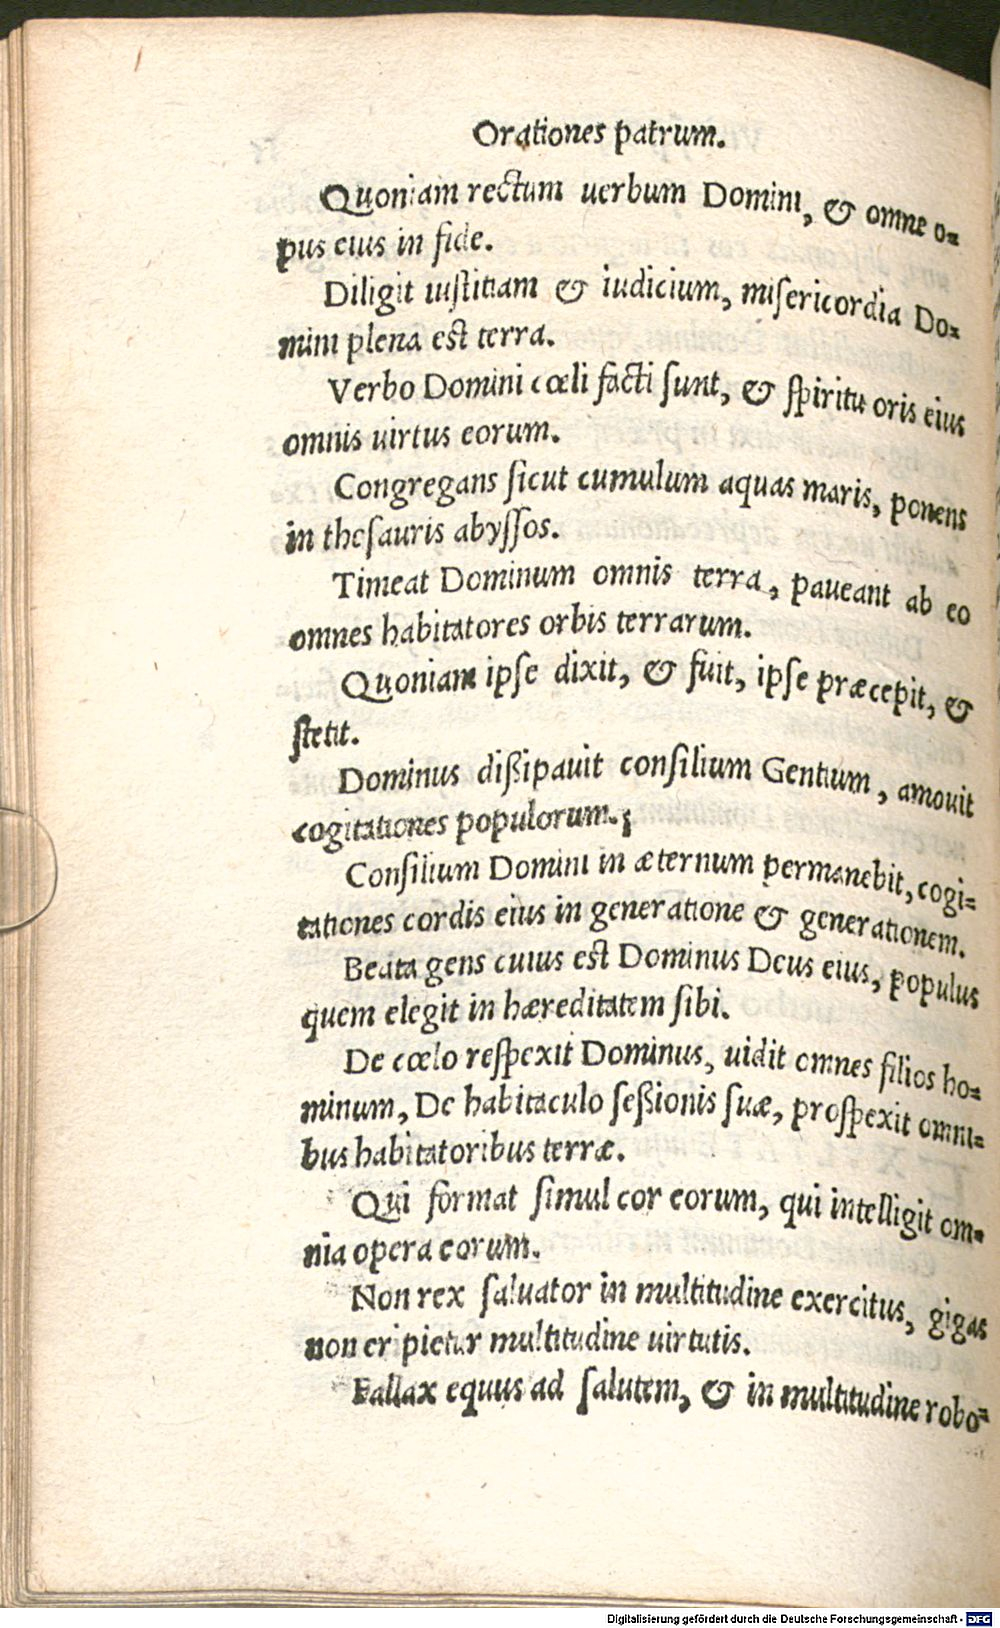 Orationes patrum.
Quoniam rectum uerbum Domini, & omne o-
pus eius in fide.
Diligit iustitiam & iudicium, misericordia Do-
mini plena est terra.
Verbo Domini cœli facti sunt, & spiritu oris eius
omnis uirtus eorum.
Congregans sicut cumulum aquas maris, ponens
in thesauris abyssos.
Timeat Dominum omnis terra, paueant ab eo
omnes habitatores orbis terrarum.
Quoniam ipse dixit, & fuit, ipse præcepit, &
stetit.
Dominus dißipauit consilium Gentium, amouit
cogitationes populorum.
Consilium Domini in æternum permanebit, cogi-
tationes cordis eius in generatione & generationem.
Beata gens cuius est Dominus Deus eius, populus
quem elegit in hæreditatem sibi.
De cœlo respexit Dominus, uidit omnes filios ho-
minum, De habitaculo seßionis suæ, prospexit omni-
bus habitatoribus terræ.
Qui format simul cor eorum, qui intelligit om-
nia opera eorum.
Non rex saluator in multitudine exercitus, gigas
non eripietur multitudine uirtutis.
Fallax equus ad salutem, & in multitudine robo-
Digitalisierung gefördert durch die Deutsche Forschungsgemeinschaft - DFG